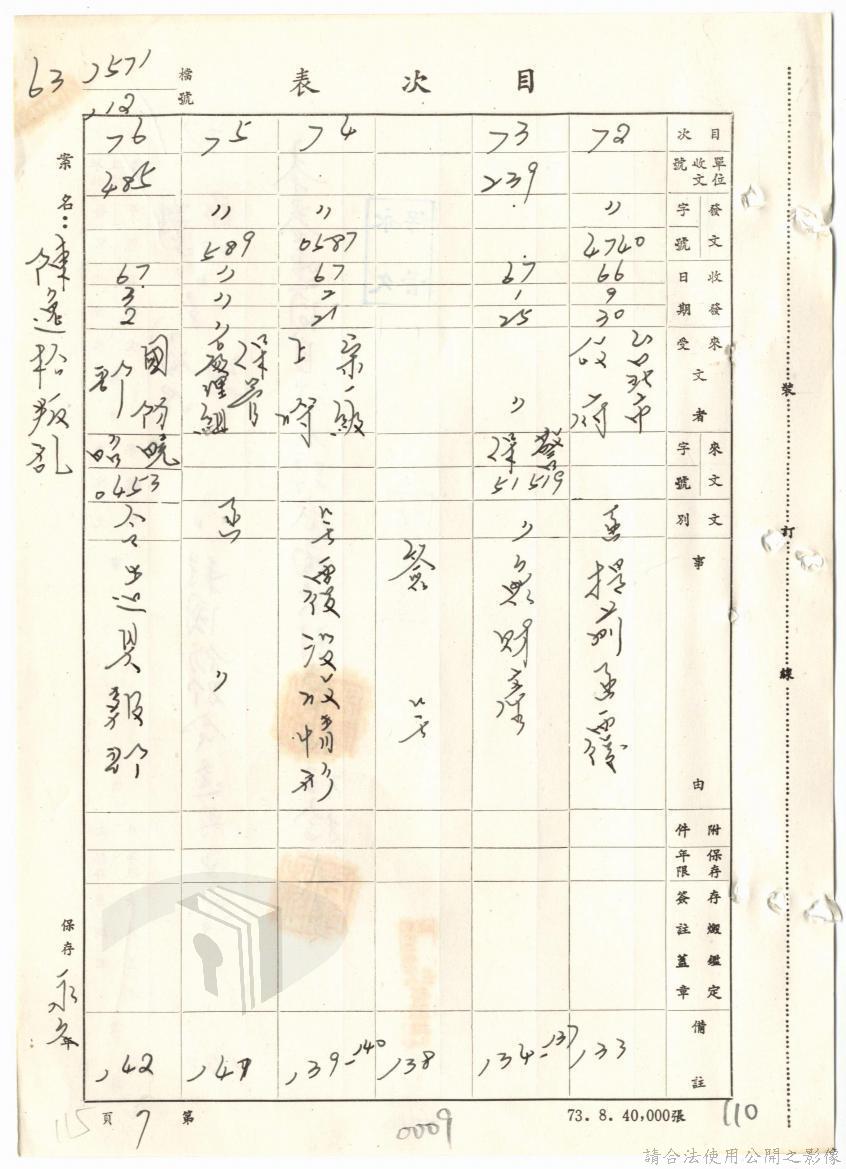 目次表
檔號
63
1571
112
案名：陳逸松叛乱
保存永久年
目次
單位收文號
發文字號
收發日期
來受文者
來文字號
文別
事由
附件
保存年限
存燬鑑定簽註蓋章
備註
72
〃
4740
66
9
30
台北市政府
函
提前函覆
133
73
239
67
1
25
〃
警保
51519
〃
財產
134-137
簽
138
74
〃
0587
67
2
21
上
覆設
情形
139-140
75
〃
589
〃
〃
〃
保管處理組
函
〃
141
76
485
67
3
2
國防部
0453
令
具報
142
裝
訂
線
第7頁
73. 8. 40,000張
0009
110
115
請合法使用公開之影像